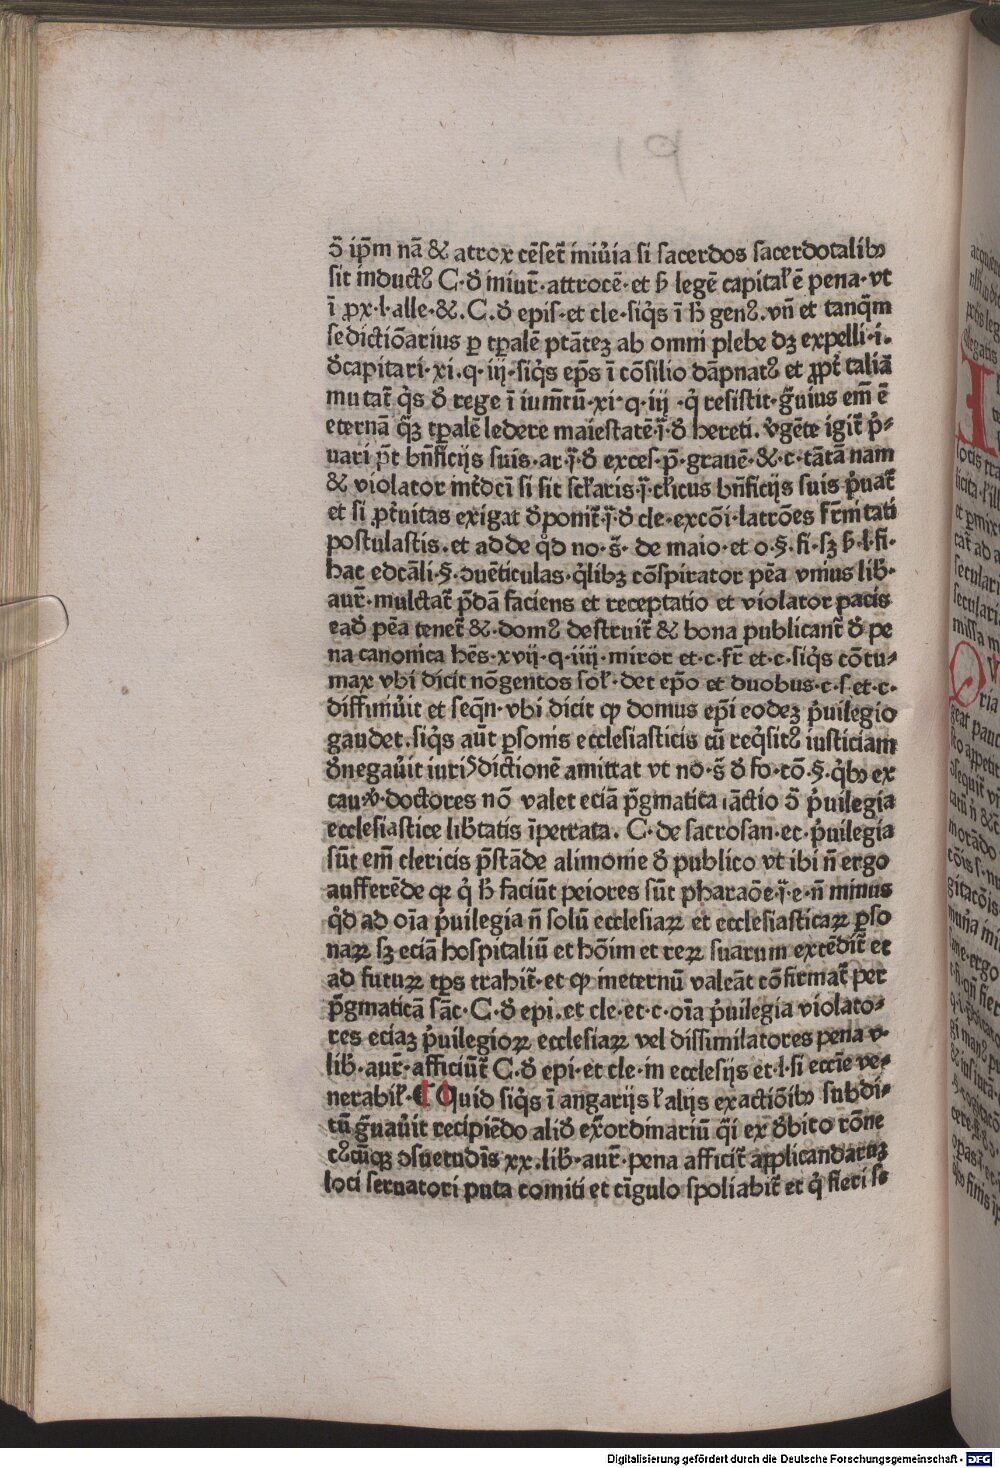 ↄ̄ ip̄m nā & atrox cēset̄ iniur̾ia si sacerdos sacerdotalibꝫ
sit inductꝰ C·d̾ iniur̄·attrocē·et h̾ legē capitał ē pena·vt
ī ꝓx·l·alle·&.C.d̾ epis·et cle·siq̾s ī h̾ genꝰ.vn̄ et tanq̄m
sedictiōarius p̱ tp̄alē ptāteꝫ ab omni plebe dꝫ expelli·i·
d̾capitari·xi.q·iij·siq̾s ep̄s ī cōsilio dāpnatꝰ et ꝓpt̾ taliā
mutat̄ q̾s d̾ rege ī ium̄tū·xi·q·iij ·q̾ resistit·g̾uius em̄ ē
eternā q̄ꝫ tp̄alē ledere maiestatē·j̄·d̾ hereti. v̾gēte igit̄ p̾-
uari p̄t bn̄ficijs suis·ar·j̄·d̾ exces·p̄·grauē·&·c·tātā nam
& violator mt̄dcī si sit scł̄aris·j̄·cłicus bn̄ficijs suis p̾uat̄
et si ꝓt̾uitas exigat d̾ponit̄·j̄·d̾ cle·excōi·latrōes fr̄nitati
postulastis.et ad de q̾d no·s̄· de maio·et o·§·fi·sꝫ h̾·l·fi·
hac edcāli·§·ↄuēticulas·q̾libꝫ cōspirator pēa vnius lib̾·
aur̄·mulctat̄ p̄dā faciens et receptatio et violator pacis
ead̾ pēa tenet̄ &·domꝰ destruit̄ & bona publicant̄ d̾ pe
na canonica hēs·xvij·q·iiij·miror et·c·fr̄ et·c·siq̾s cōtu-
max vbi dicit nōgentos soł·det ep̄o et duobus·c·s·et·c·
diffiniu̾it et seqn̄·vbi dicit ꝙ domus ep̄i eodeꝫ p̾uilegio
gaudet.siq̾s aūt ꝑsonis ecclesiasticis cū req̾sitꝰ iusticiam
d̾negau̾it iuriↄdictionē amittat vt no·s̄ d̾ fo·cō·§·q̾bꝫ ex
cau·v̾·doctores nō valet eciā p̄gmatica iāctio ↄ̄ p̾uilegia
ecclesiastice lib̾tatis īpetrata. C·de sacrosan·ec·p̾uilegia
sūt em̄ clericis p̄stāde alimonie d̾ publico vt ibi n̄ ergo
aufferēde qꝛ q̾ h̾ faciūt peiores sūt pharaōe·j̄·e·n̄ minus
q̾d ad oīa p̾uilegia n̄ solū ecclesiaꝝ et ecclesiasticaꝝ ꝑso
naꝝ sꝫ eciā hospitaliū et hōim et reꝝ suarum extēdit̄ et
ad futuꝝ tp̄s trahit̄·et ꝙ ineternū valeāt cōfirmat̄ per
p̄gmaticā sāc·C·d̾ epi.et cle·et·c·oīa p̾uilegia violato-
res eciaꝫ p̾uilegioꝝ ecclesiaꝝ vel dissimilatores pena v·
lib̾·aur̄·afficiūt̄ C·d̾ epi·et cle·in ecclesijs et·l·si eccīe ve-
nerabił·¶ Quid siq̾s ī angarijs ł alijs exactiōibꝫ subdi-
tū g̾uau̾it recipiēdo aliq̾d ex̄ordinariū q̄i ex d̾bito rōne
cꝰcūqꝫ ↄsuetudīs xx.lib̾·aur̄·pena afficit̄ applicandaruꝫ
loci seruatori puta comiti et cīgulo spoliabit̄ et q̾ fieri se
Digitalisierung gefördert durch die Deutsche Forschungsgemeinschaft - DFG